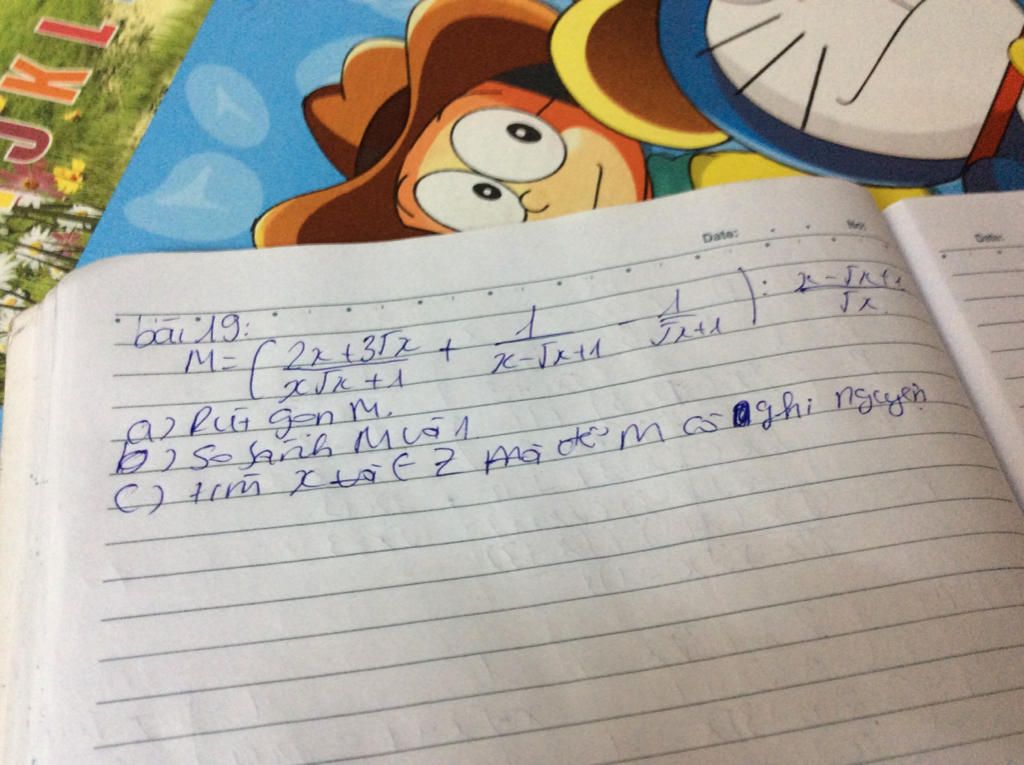 J K L
Date: No:
Date:
bài 19:
M = ( \frac{2x+3\sqrt{x}}{x\sqrt{x}+1} + \frac{1}{x-\sqrt{x}+1} - \frac{1}{\sqrt{x}+1} ) : \frac{x-\sqrt{x}+1}{\sqrt{x}}
a) Rút gọn M.
b) So sánh M và 1
c) tìm x ∈ Z mà để M có ghi nguyện